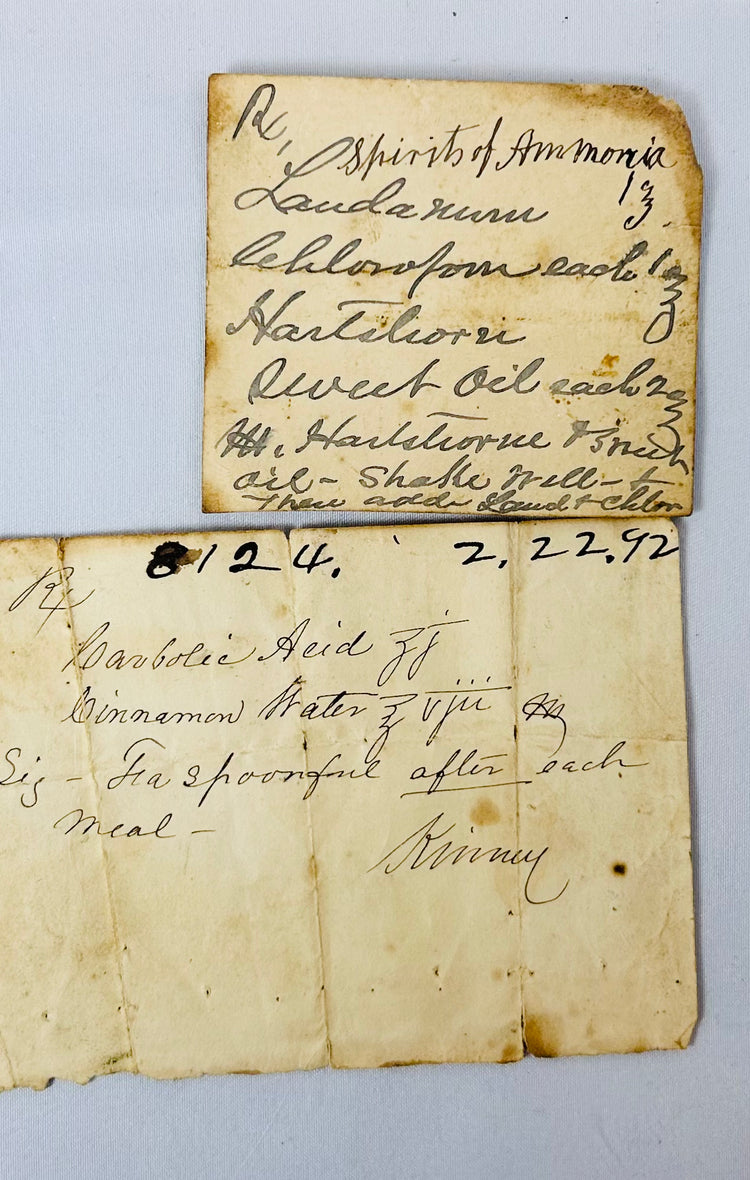 Rx,
Spirits of Ammonia
Laudanum 1 ʒ.
Chloroform each 1 ℥
Hartshorn
Sweet Oil each 2 ℥
M, Hartshorne & Sweet
oil – Shake Well – &
Then add Laud & Chlor
8124. 2.22.92
Rx
Carbolic Acid ʒj
Cinnamon Water ℥ vjii M
Sig – Teaspoonful after each
meal –
Kinney